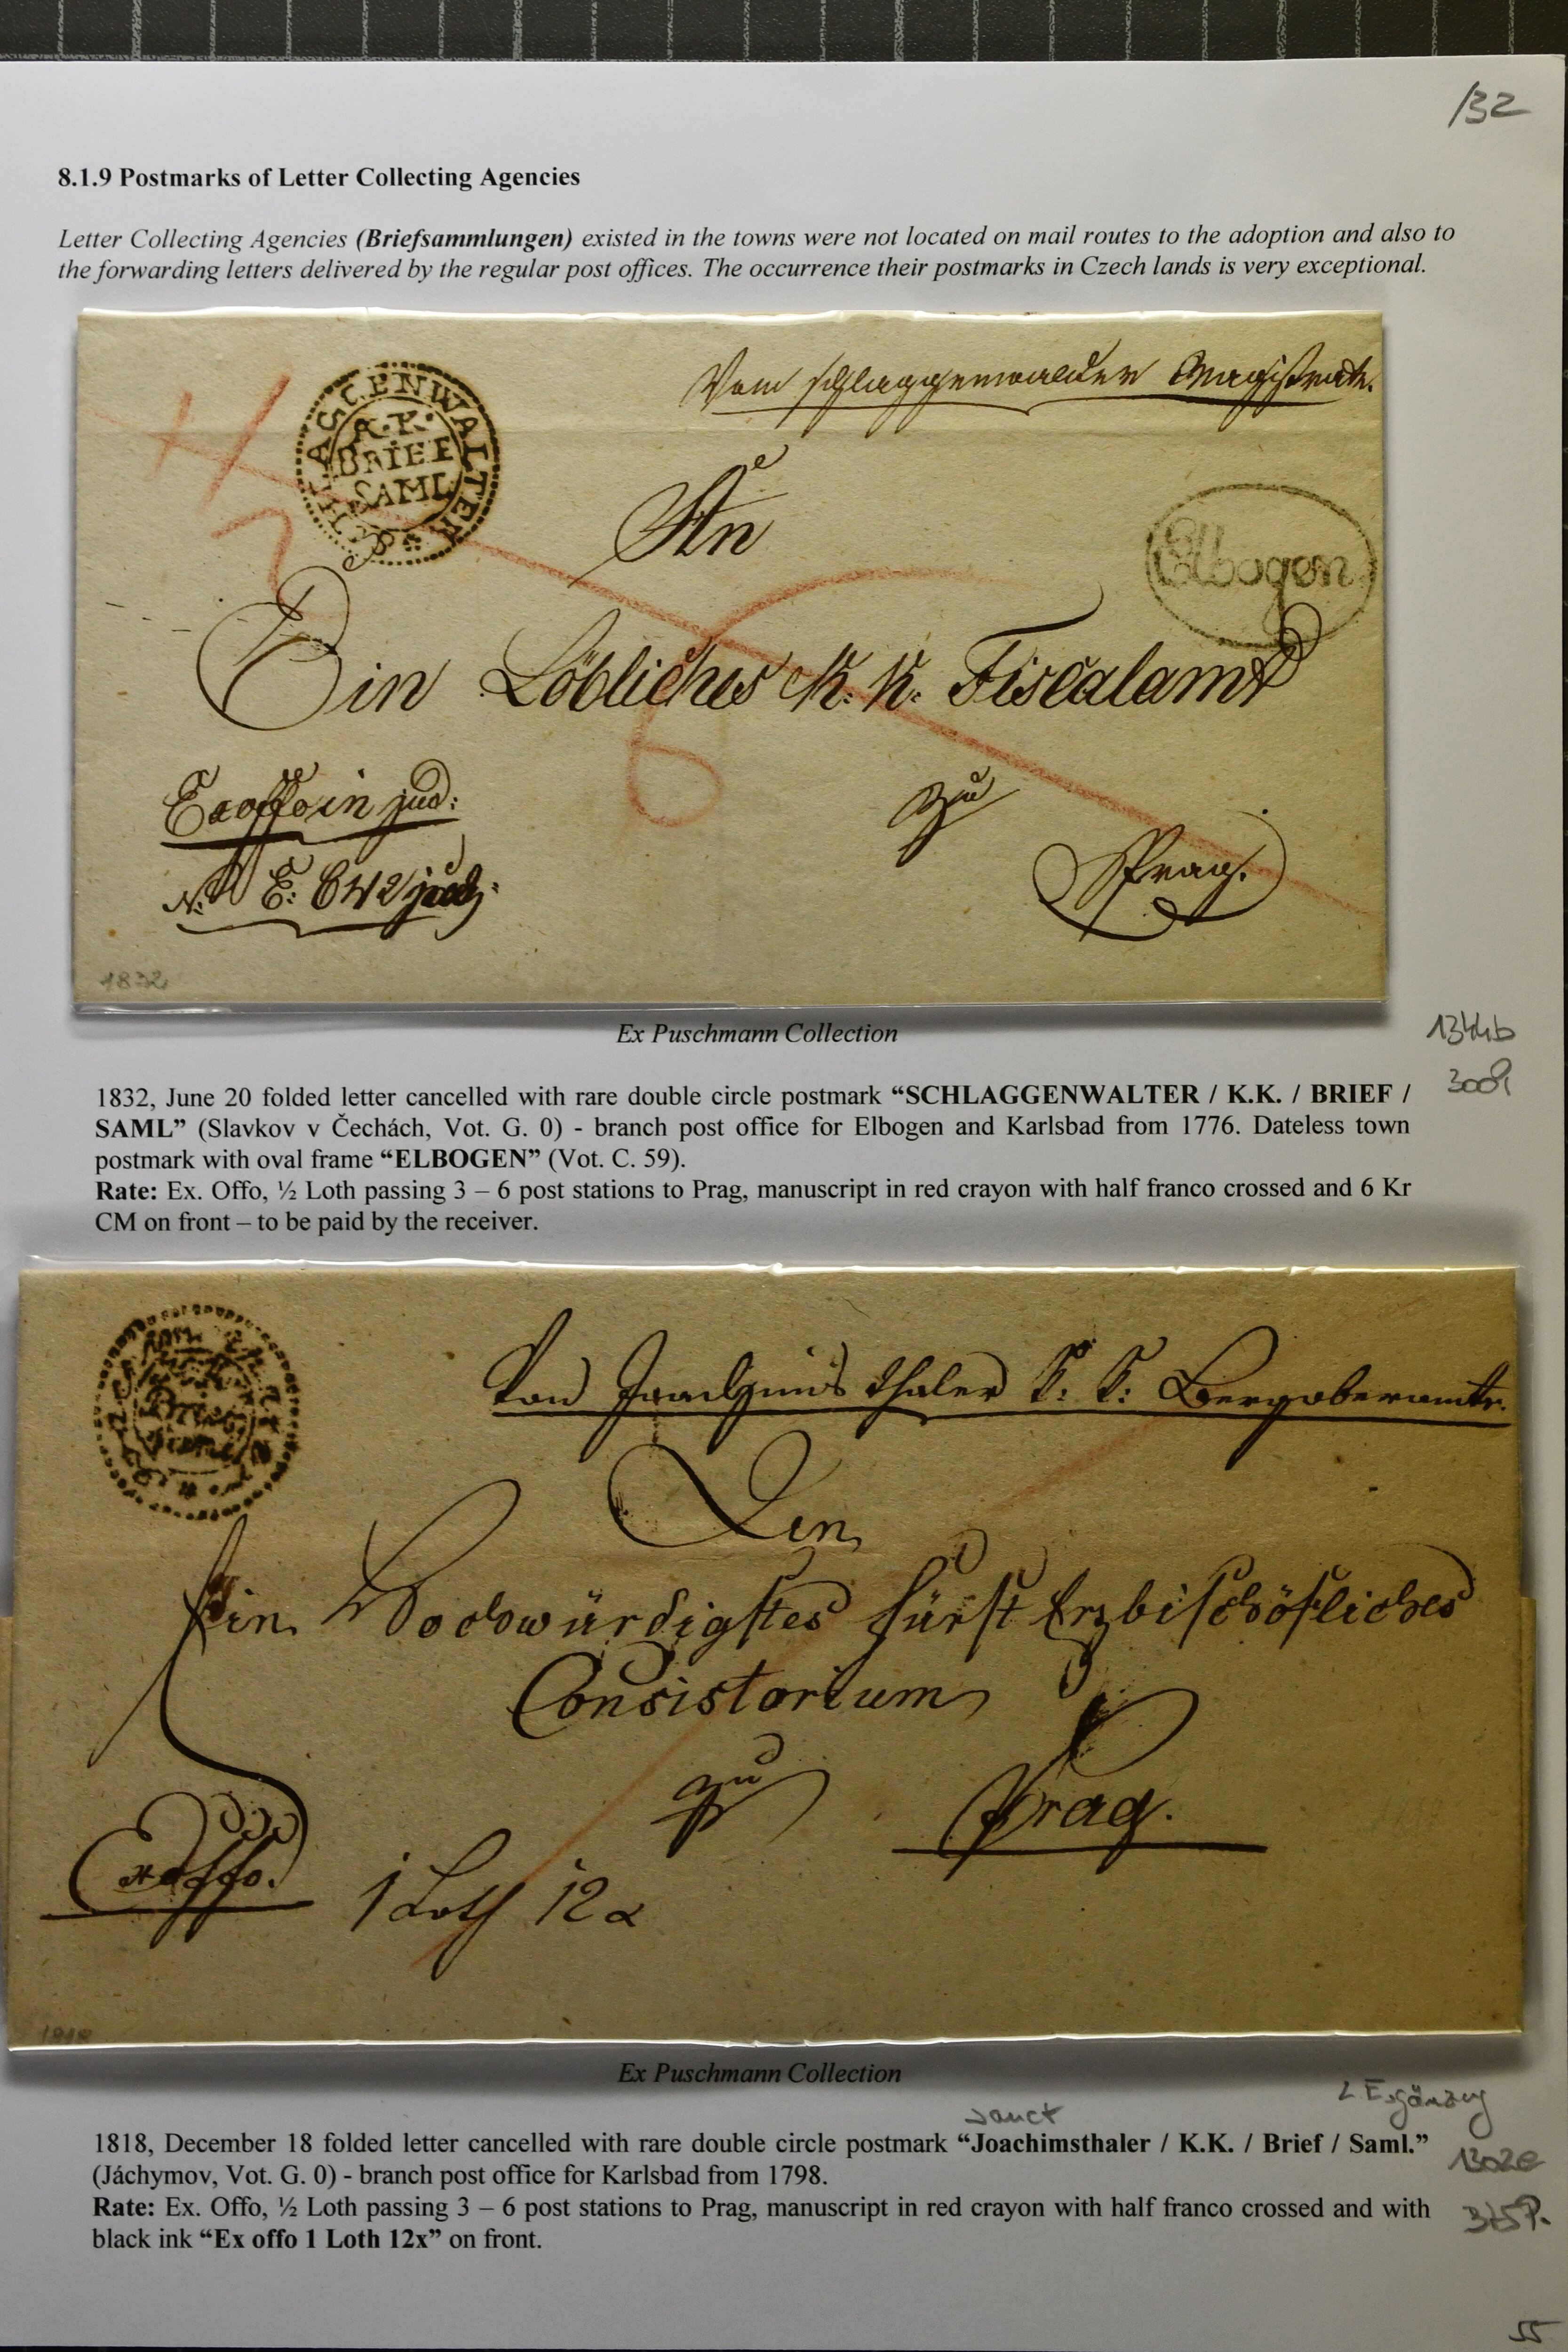 132
8.1.9 Postmarks of Letter Collecting Agencies
Letter Collecting Agencies (Briefsammlungen) existed in the towns were not located on mail routes to the adoption and also to
the forwarding letters delivered by the regular post offices. The occurrence their postmarks in Czech lands is very exceptional.
Vom Schlaggenwalder Magistrate.
SCHLAGGENWALTER
K.K.
BRIEF
SAML
An
Elbogen
Ein Löbliches K: K: Fiscalamt
6
Exoffo in jud:
zu
Prag.
1832
Ex Puschmann Collection
1344b
300P
1832, June 20 folded letter cancelled with rare double circle postmark “SCHLAGGENWALTER / K.K. / BRIEF /
SAML” (Slavkov v Čechách, Vot. G. 0) - branch post office for Elbogen and Karlsbad from 1776. Dateless town
postmark with oval frame “ELBOGEN” (Vot. C. 59).
Rate: Ex. Offo, ½ Loth passing 3 – 6 post stations to Prag, manuscript in red crayon with half franco crossed and 6 Kr
CM on front – to be paid by the receiver.
Von Joachimsthaler K: K: Bergoberamte.
Brief
Ein Hochwürdigstes fürst Erzbischöfliches
Consistorium
zu Prag.
Exoffo.
1 Loth 12x
1818
Ex Puschmann Collection
Sanct
2. Ergänzung
1818, December 18 folded letter cancelled with rare double circle postmark “Joachimsthaler / K.K. / Brief / Saml.”
(Jáchymov, Vot. G. 0) - branch post office for Karlsbad from 1798.
1302e
Rate: Ex. Offo, ½ Loth passing 3 – 6 post stations to Prag, manuscript in red crayon with half franco crossed and with
375P.
black ink “Ex offo 1 Loth 12x” on front.
55